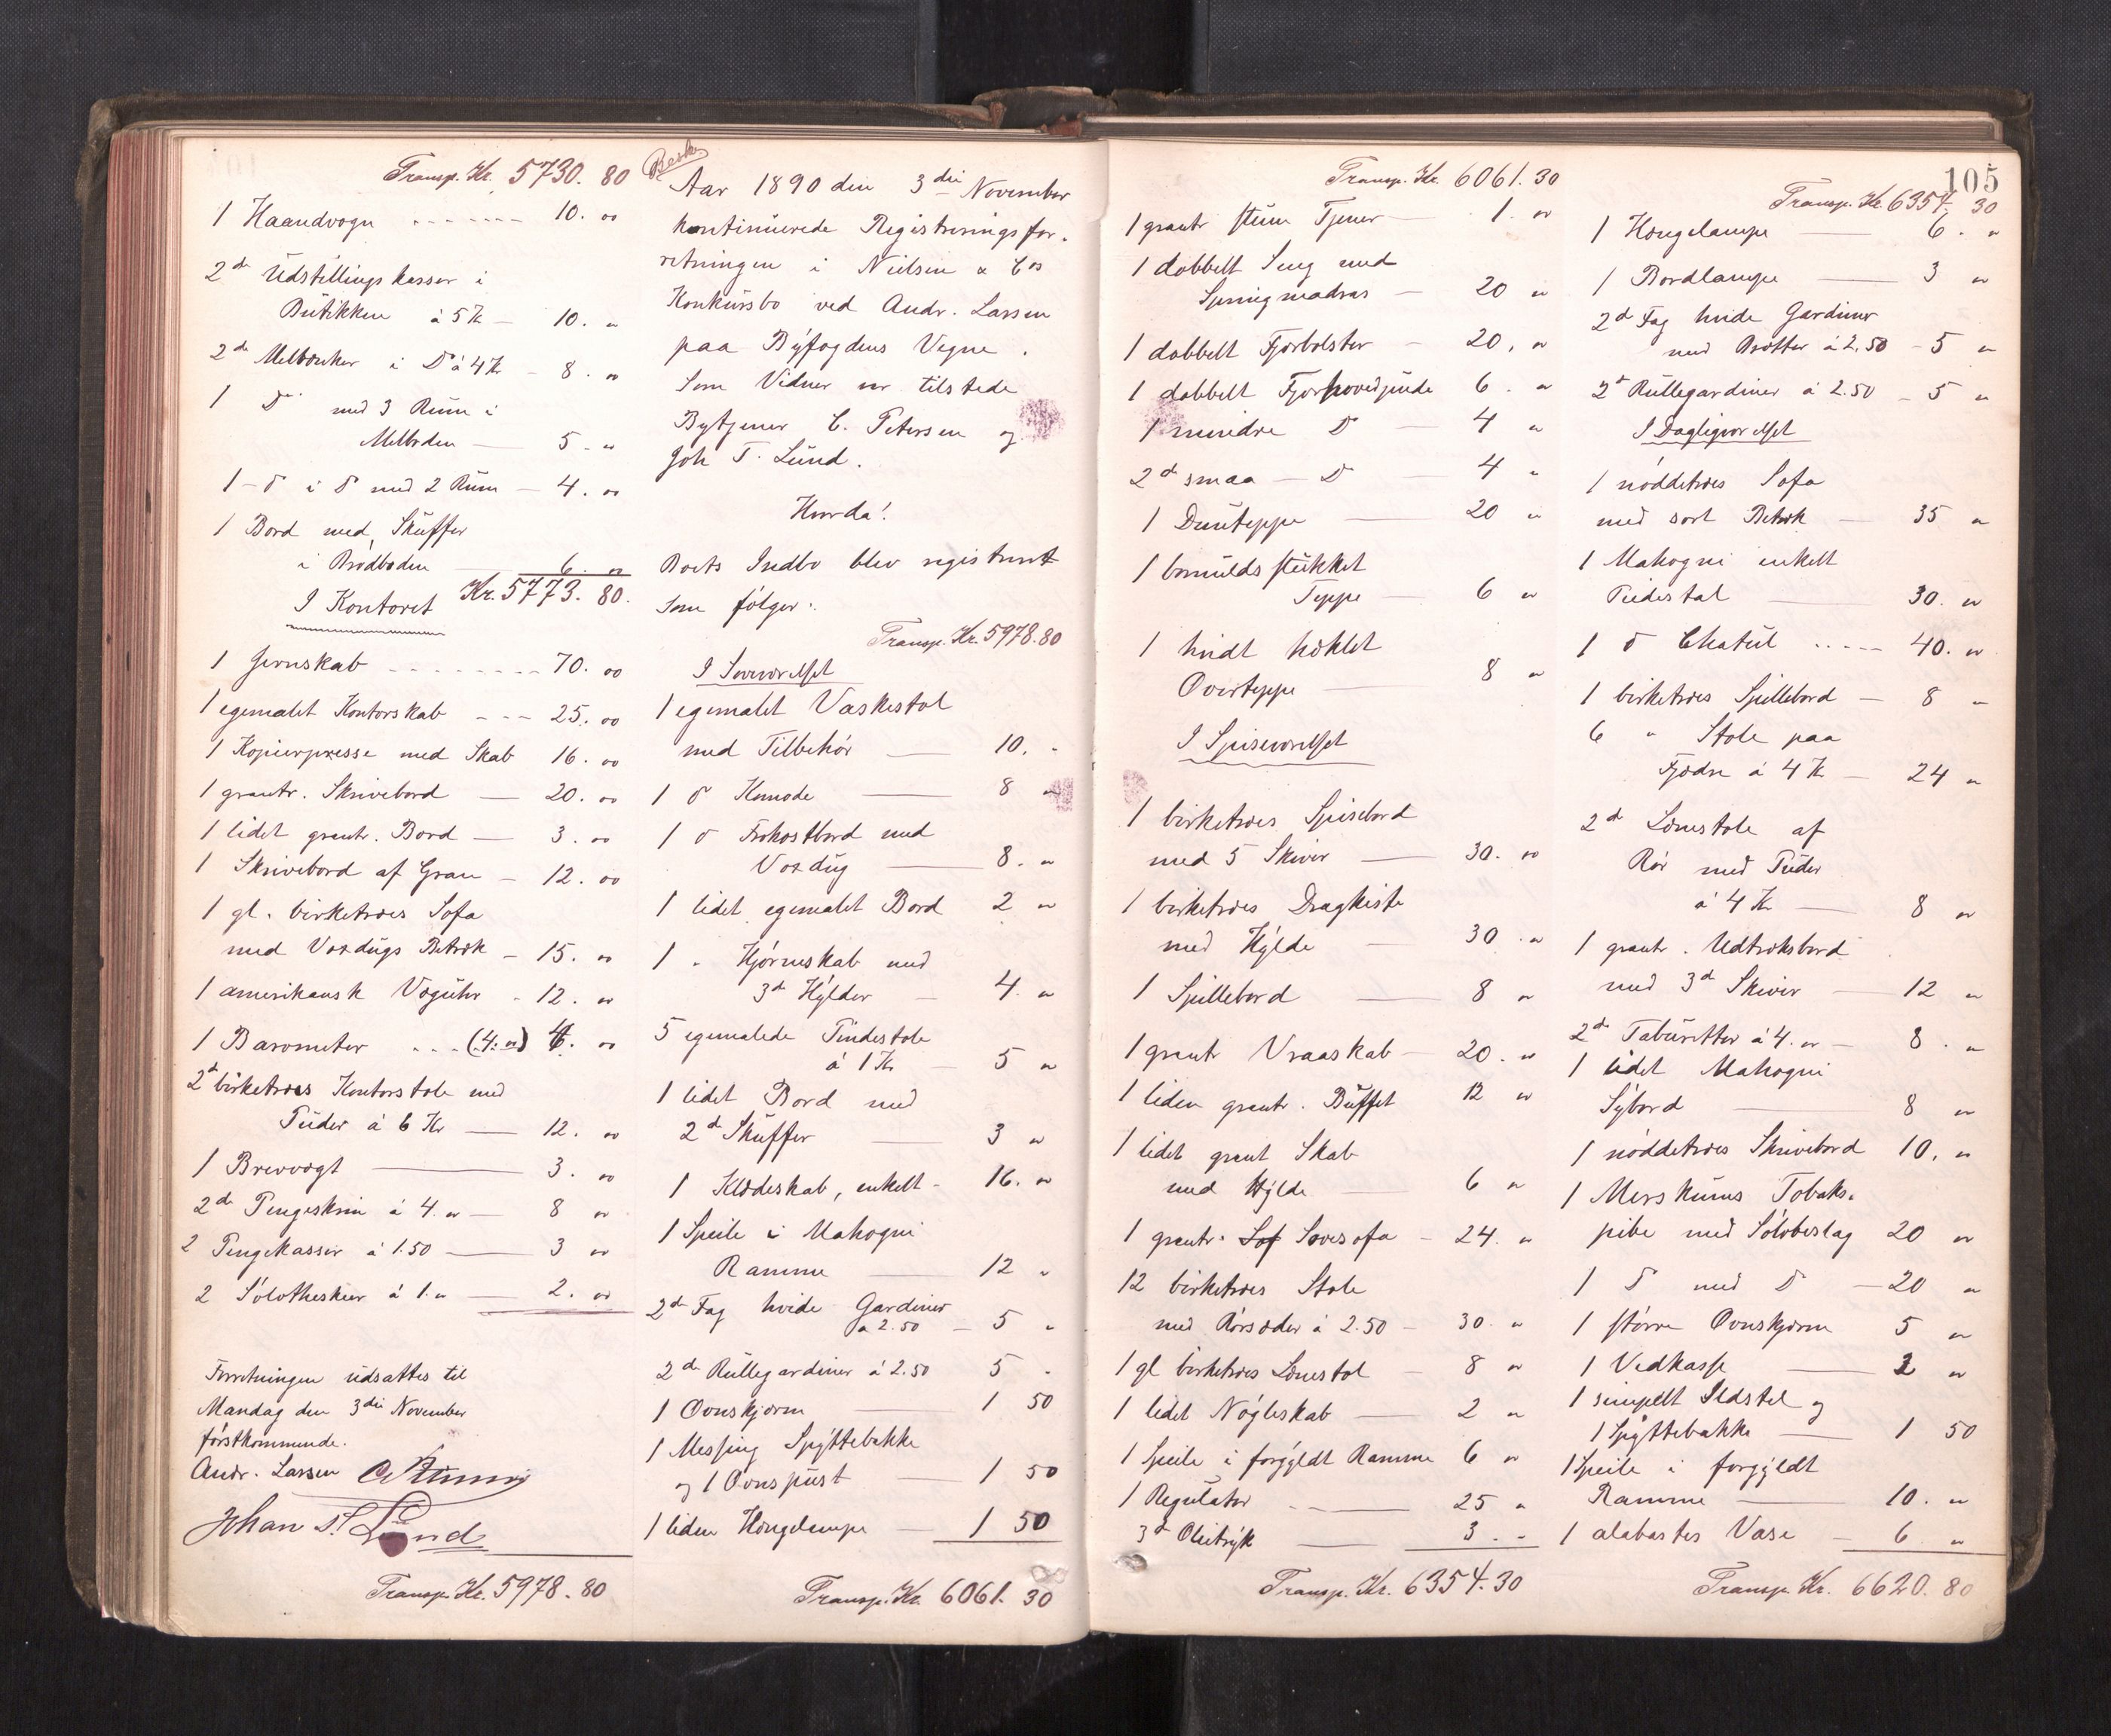 Transp. Kr. 5730. 80
1 Haandvogn - - - - - - - 10. 00
2de Udstillingskasser i
Butikken á 5 Kr — 10. "
2de Melbænker i Do á 4 Kr - 8. 00
1 Do med 3 Rum i
Melboden — 5 - "
1 - do i do med 2 Rum — 4. 00
1 Bord med Skuffer
i Brødboden — 6. 00
Kr. 5773. 80.
I Kontoret
1 Jernskab - - - - - - - - 70. 00
1 egemalet Kontorskab - - - 25. 00
1 Kopierpresse med Skab 16. 00
1 grantr. Skrivebord — 20. 00
1 lidet grantr. Bord — 3. 00
1 Skrivebord af Gran — 12. 00
1 gl. birketræes Sofa
med Voxdugs Betræk - 15. 00
1 amerikansk Væguhr - 12. 00
1 Barometer - - - (4. 00) 4. 00
2de birketræes Kontorstole med
Puder á 6 Kr — 12. 00
1 Brevvægt — 3. 00
2de Pengeskrin á 4. 00 — 8 00
2 Pengekasser á 1.50 — 3 00
2 Sølvtheskeer á 1. " — 2. 00
Forretningen udsattes til
Mandag den 3die November
førstkommende.
Andr. Larsen
Johan T. Lund
Transp. Kr. 5978. 80
Aar 1890 den 3die November
kontinuerede Registreringsfor-
retningen i Nielsen & Cos
Konkursbo ved Andr. Larsen
paa Byfogdens Vegne.
Som Vidner var tilstede
Bytjener C. Petersen og
Joh T. Lund.
Hvorda!
Boets Indbo blev registreret
som følger:
Transp. Kr. 5978.80
I Soveværelset
1 egemalet Vaskestol
med Tilbehør — 10. -
1 do Komode — 8 "
1 do Frokostbord med
Voxdug — 8. "
1 lidet egemalet Bord 2 "
1 " Hjørneskab med
3de Hylder — 4. "
5 egemalede Pindestole
á 1 Kr — 5 "
1 lidet Bord med
2de Skuffer — 3 "
1 Klædeskab, enkelt - 16. "
1 Speile i Mahogni
Ramme — 12 "
2de Fag hvide Gardiner
á 2.50 — 5 "
2de Rullegardiner á 2.50 5 -
1 Ovnskjærm — 1 50
1 Messing Spyttebakke
og 1 Ovnspust — 1 50
1 liden Hængelampe — 1 50
Transp. Kr. 6061. 30
Transp. Kr. 6061. 30
1 grantr stum Tjener — 1. 00
1 dobbelt Seng med
Springmadras — 20 "
1 dobbelt Fjærbolster — 20. "
1 dobbelt Fjærhovedpude 6. "
1 mindre Do — 4 "
2de smaa — Do — 4 "
1 Dunteppe — 20 "
1 bomulds stukket
Teppe — 6 "
1 hvidt hæklet
Overteppe — 8 "
I Spiseværelset
1 birketræes Spisebord
med 5 Skiver — 30. 00
1 birketræes Dragkiste
med Hylde — 30. "
1 Spillebord — 8 "
1 grantr Vraaskab — 20. "
1 liden grantr. Buffet 12 "
1 lidet grant Skab
med Hylde — 6 "
1 grantr. Sof Sovesofa — 24. "
12 birketræes Stole
med Rørsæder á 2.50 — 30. "
1 gl birketræes Lænestol — 8 "
1 lidet Nøgleskab — 2 "
1 Speile i forgyldt Ramme 6 "
1 Regulator - — 25 "
3de Olietryk — 3. -
Transp. Kr. 6354.30
105
Transp. Kr. 6354. 30
1 Hængelampe — 6. "
1 Bordlampe — 3 "
2de Fag hvide Gardiner
med Bretter á 2.50 - 5 "
2de Rullegardiner á 2.50 - 5 "
I Dagligværelset
1 nøddetræes Sofa
med sort Betræk — 35 "
1 Mahogni enkelt
Piedestal — 30. "
1 do Chatul - - - - - 40. "
1 birketræes Spillebord — 8 "
6 " Stole paa
Fjædre á 4 Kr — 24 "
2de Lænestole af
Rør med Puder
á 4 Kr — 8 "
1 grantr. Udtræksbord
med 3de Skiver — 12 "
2de Taburetter á 4. 00 — 8. "
1 lidet Mahogni
Sybord — 8 "
1 nøddetræes Skrivebord 10. "
1 Merskums Tobaks-
pibe med Sølvbeslag 20 "
1 do med do — 20 "
1 større Ovnskjærm 5 "
1 Vedkasse — 2 "
1 simpelt Ildstel og
1 Spyttebakke — 1 50
1 Speile i forgyldt
Ramme — 10. "
1 alabaster Vase — 6 "
Transp. Kr. 6620. 80